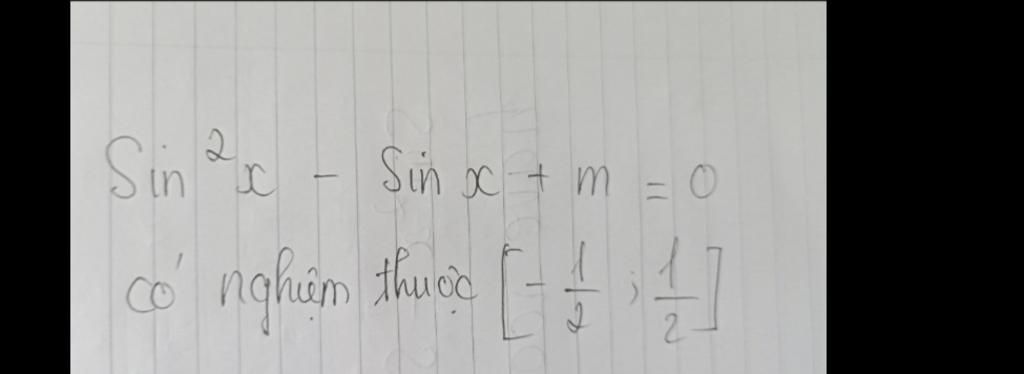 Sin²x - Sin x + m = 0
có nghiệm thuộc [-1/2 ; 1/2]